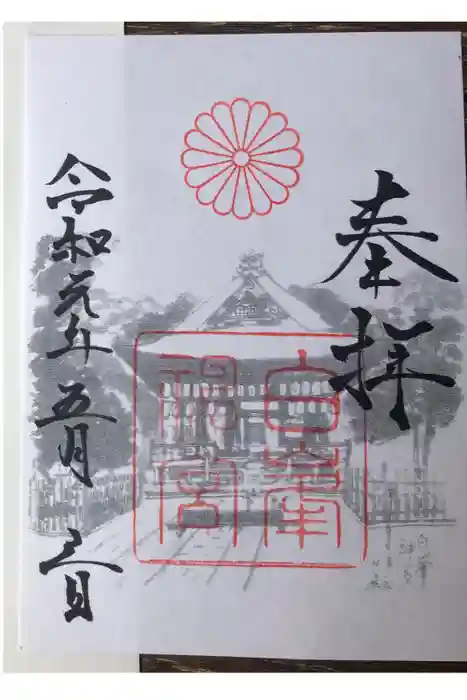 奉拝
白峯
神宮
令和元年五月三日